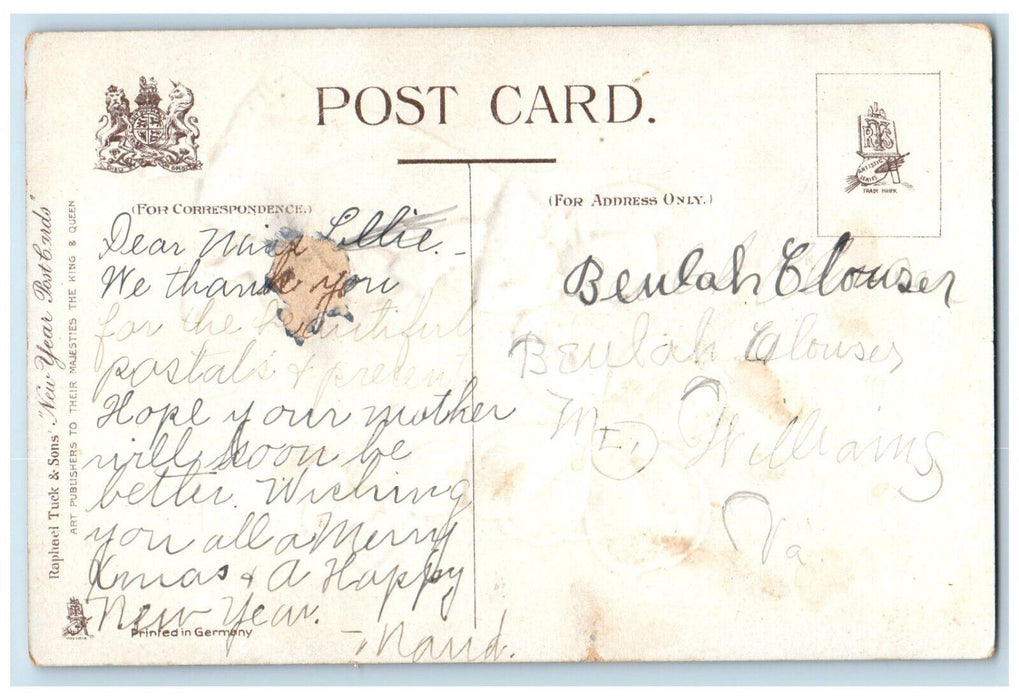 POST CARD.
(FOR CORRESPONDENCE.)
(FOR ADDRESS ONLY.)
RT&S
ARTISTIC SERIES
TRADE MARK
Raphael Tuck & Sons' "New Year Post Cards"
ART PUBLISHERS TO THEIR MAJESTIES THE KING & QUEEN
Dear Miss Lillie. -
We thank you
for the beautiful
postals & present
Hope your mother
will soon be
better. Wishing
you all a Merry
Xmas & A Happy
New Year.
- Maud.
Printed in Germany
Beulah Clouser
Beulah Clouser
Williams
Va